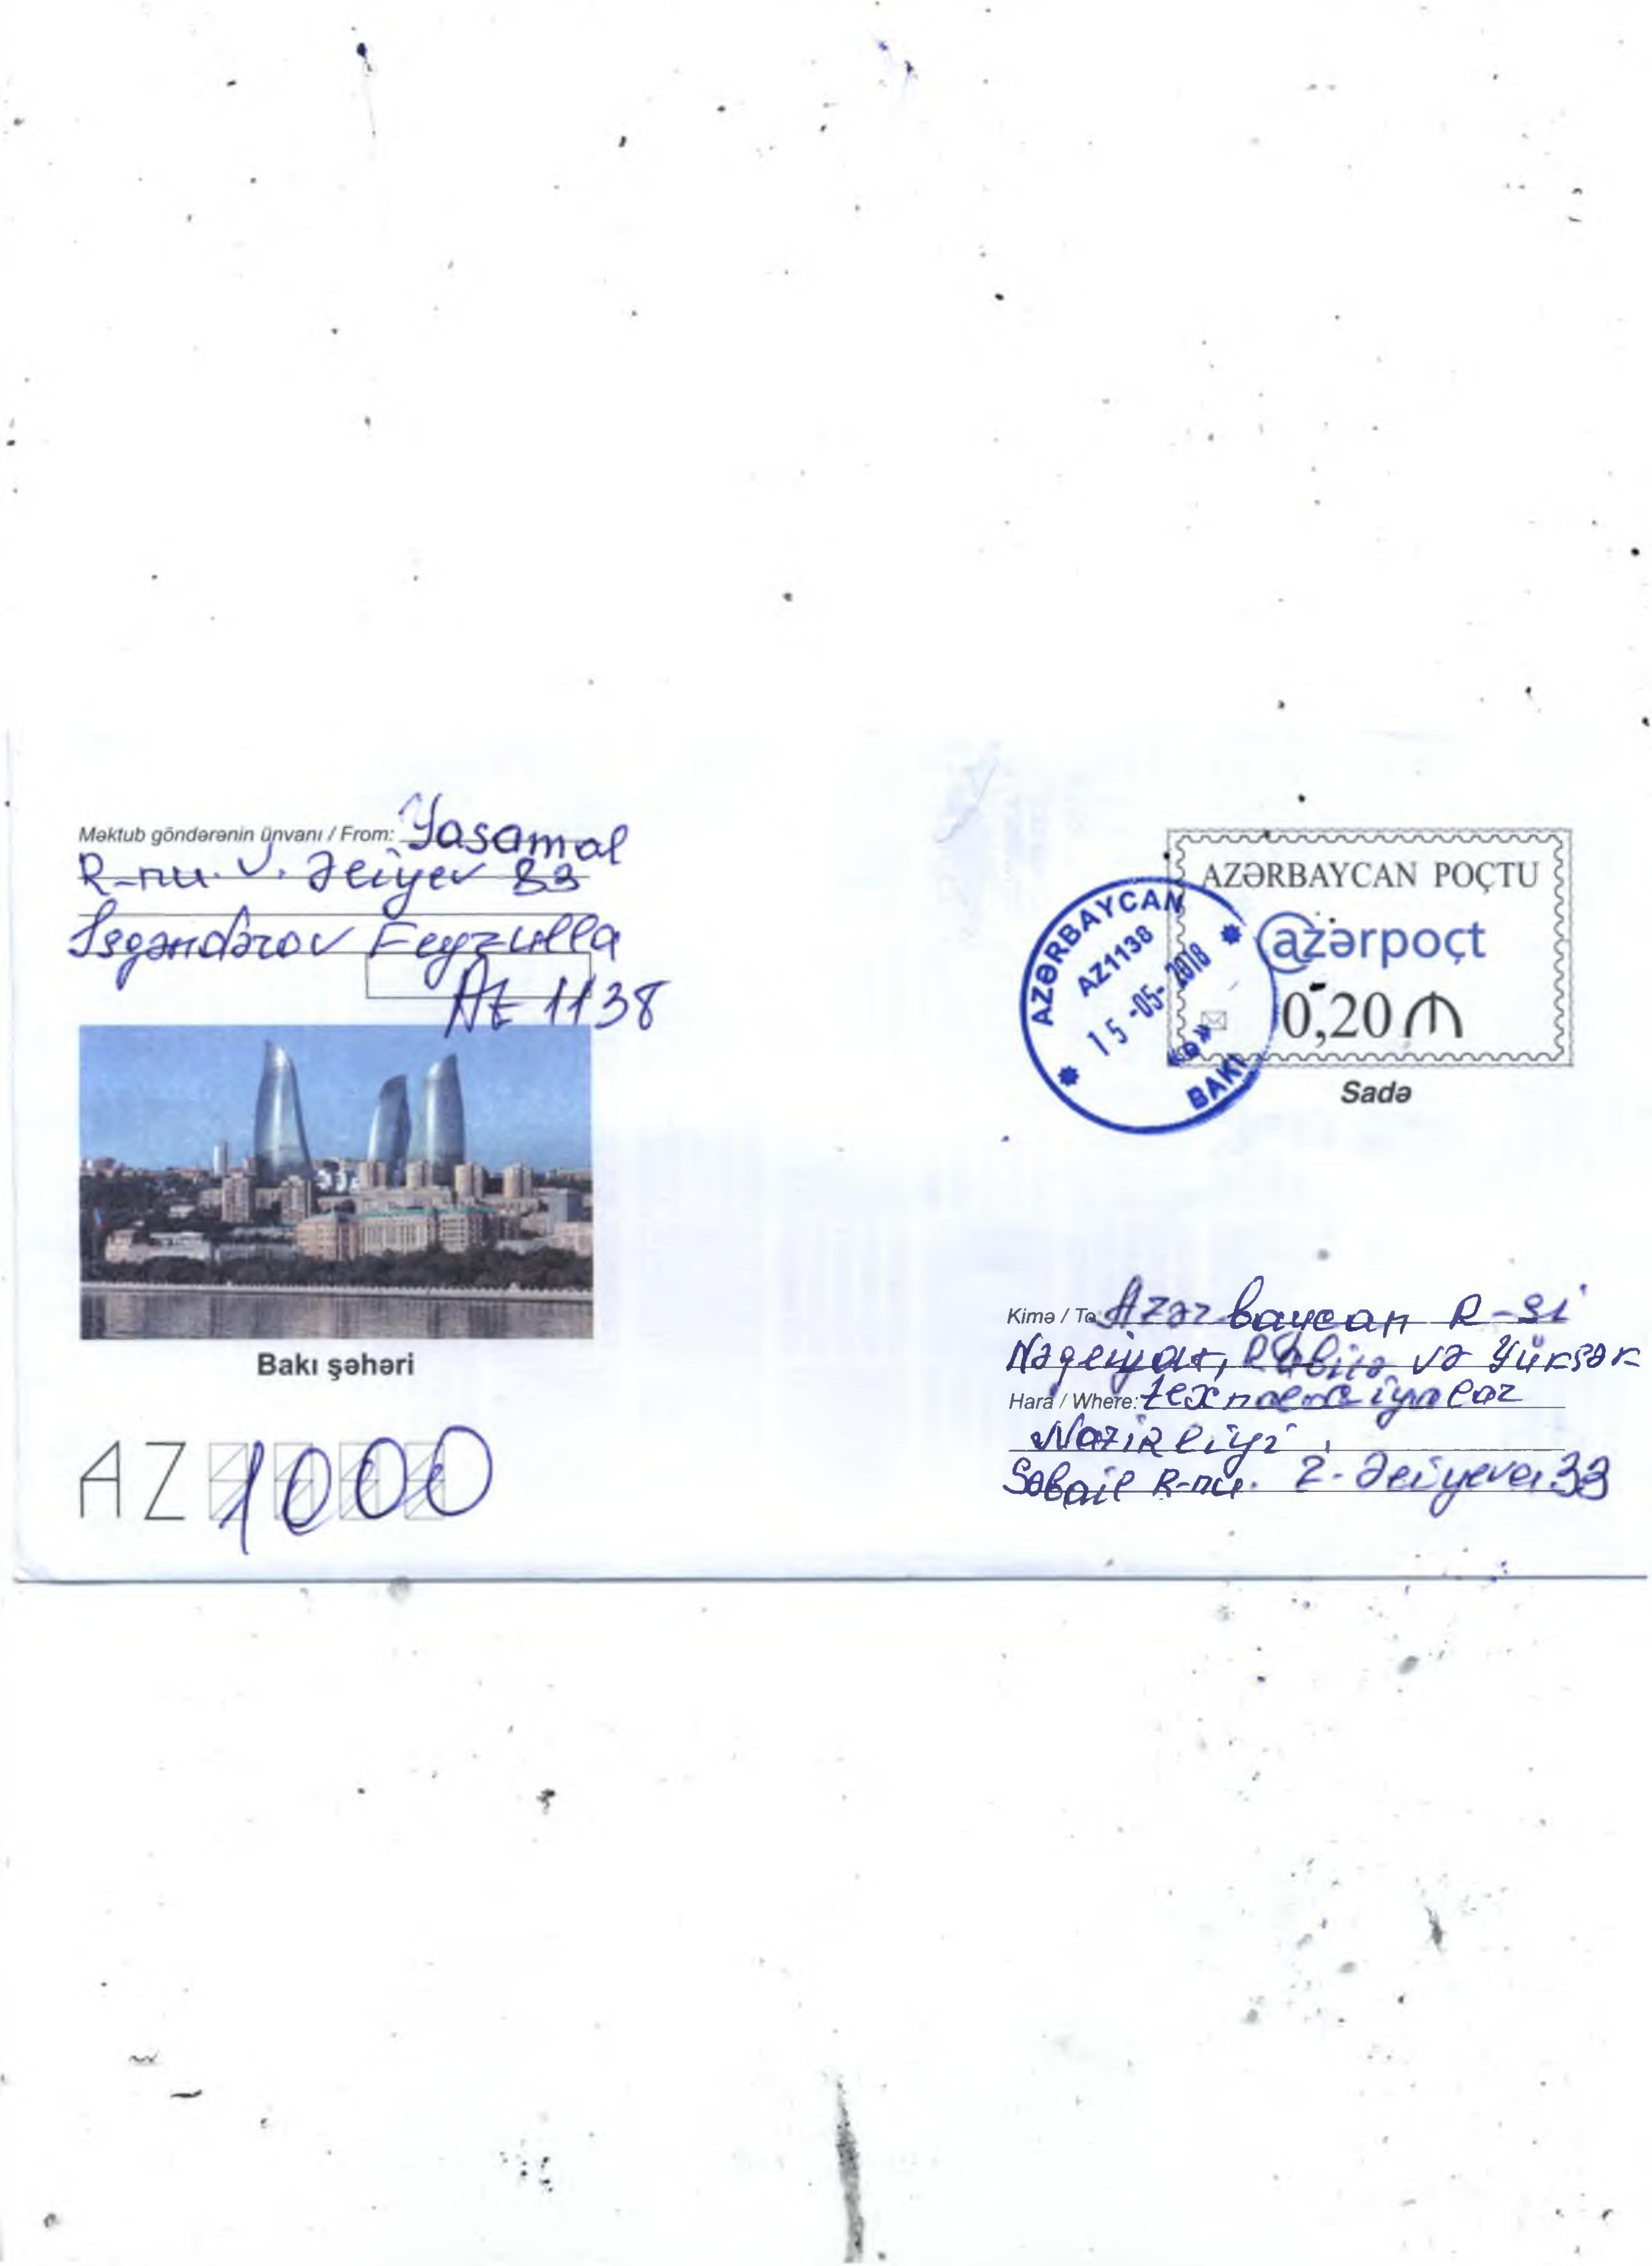 Məktub göndərənin ünvanı / From: Yasamal
R-nu. V. Əliyev 83
İsgəndərov Feyzulla
AZ 1138
Bakı şəhəri
AZ 1000
AZƏRBAYCAN POÇTU
azərpoçt
0,20 ₼
Sadə
AZƏRBAYCAN
AZ1138
15-05-2018
«D»
BAKI
Kimə / To: Azərbaycan R-si
Nəqliyyat, Rabitə və Yüksək
Hara / Where: texnologiyalar
Nazirliyi
Səbail R-nu. Z. Əliyeva 33